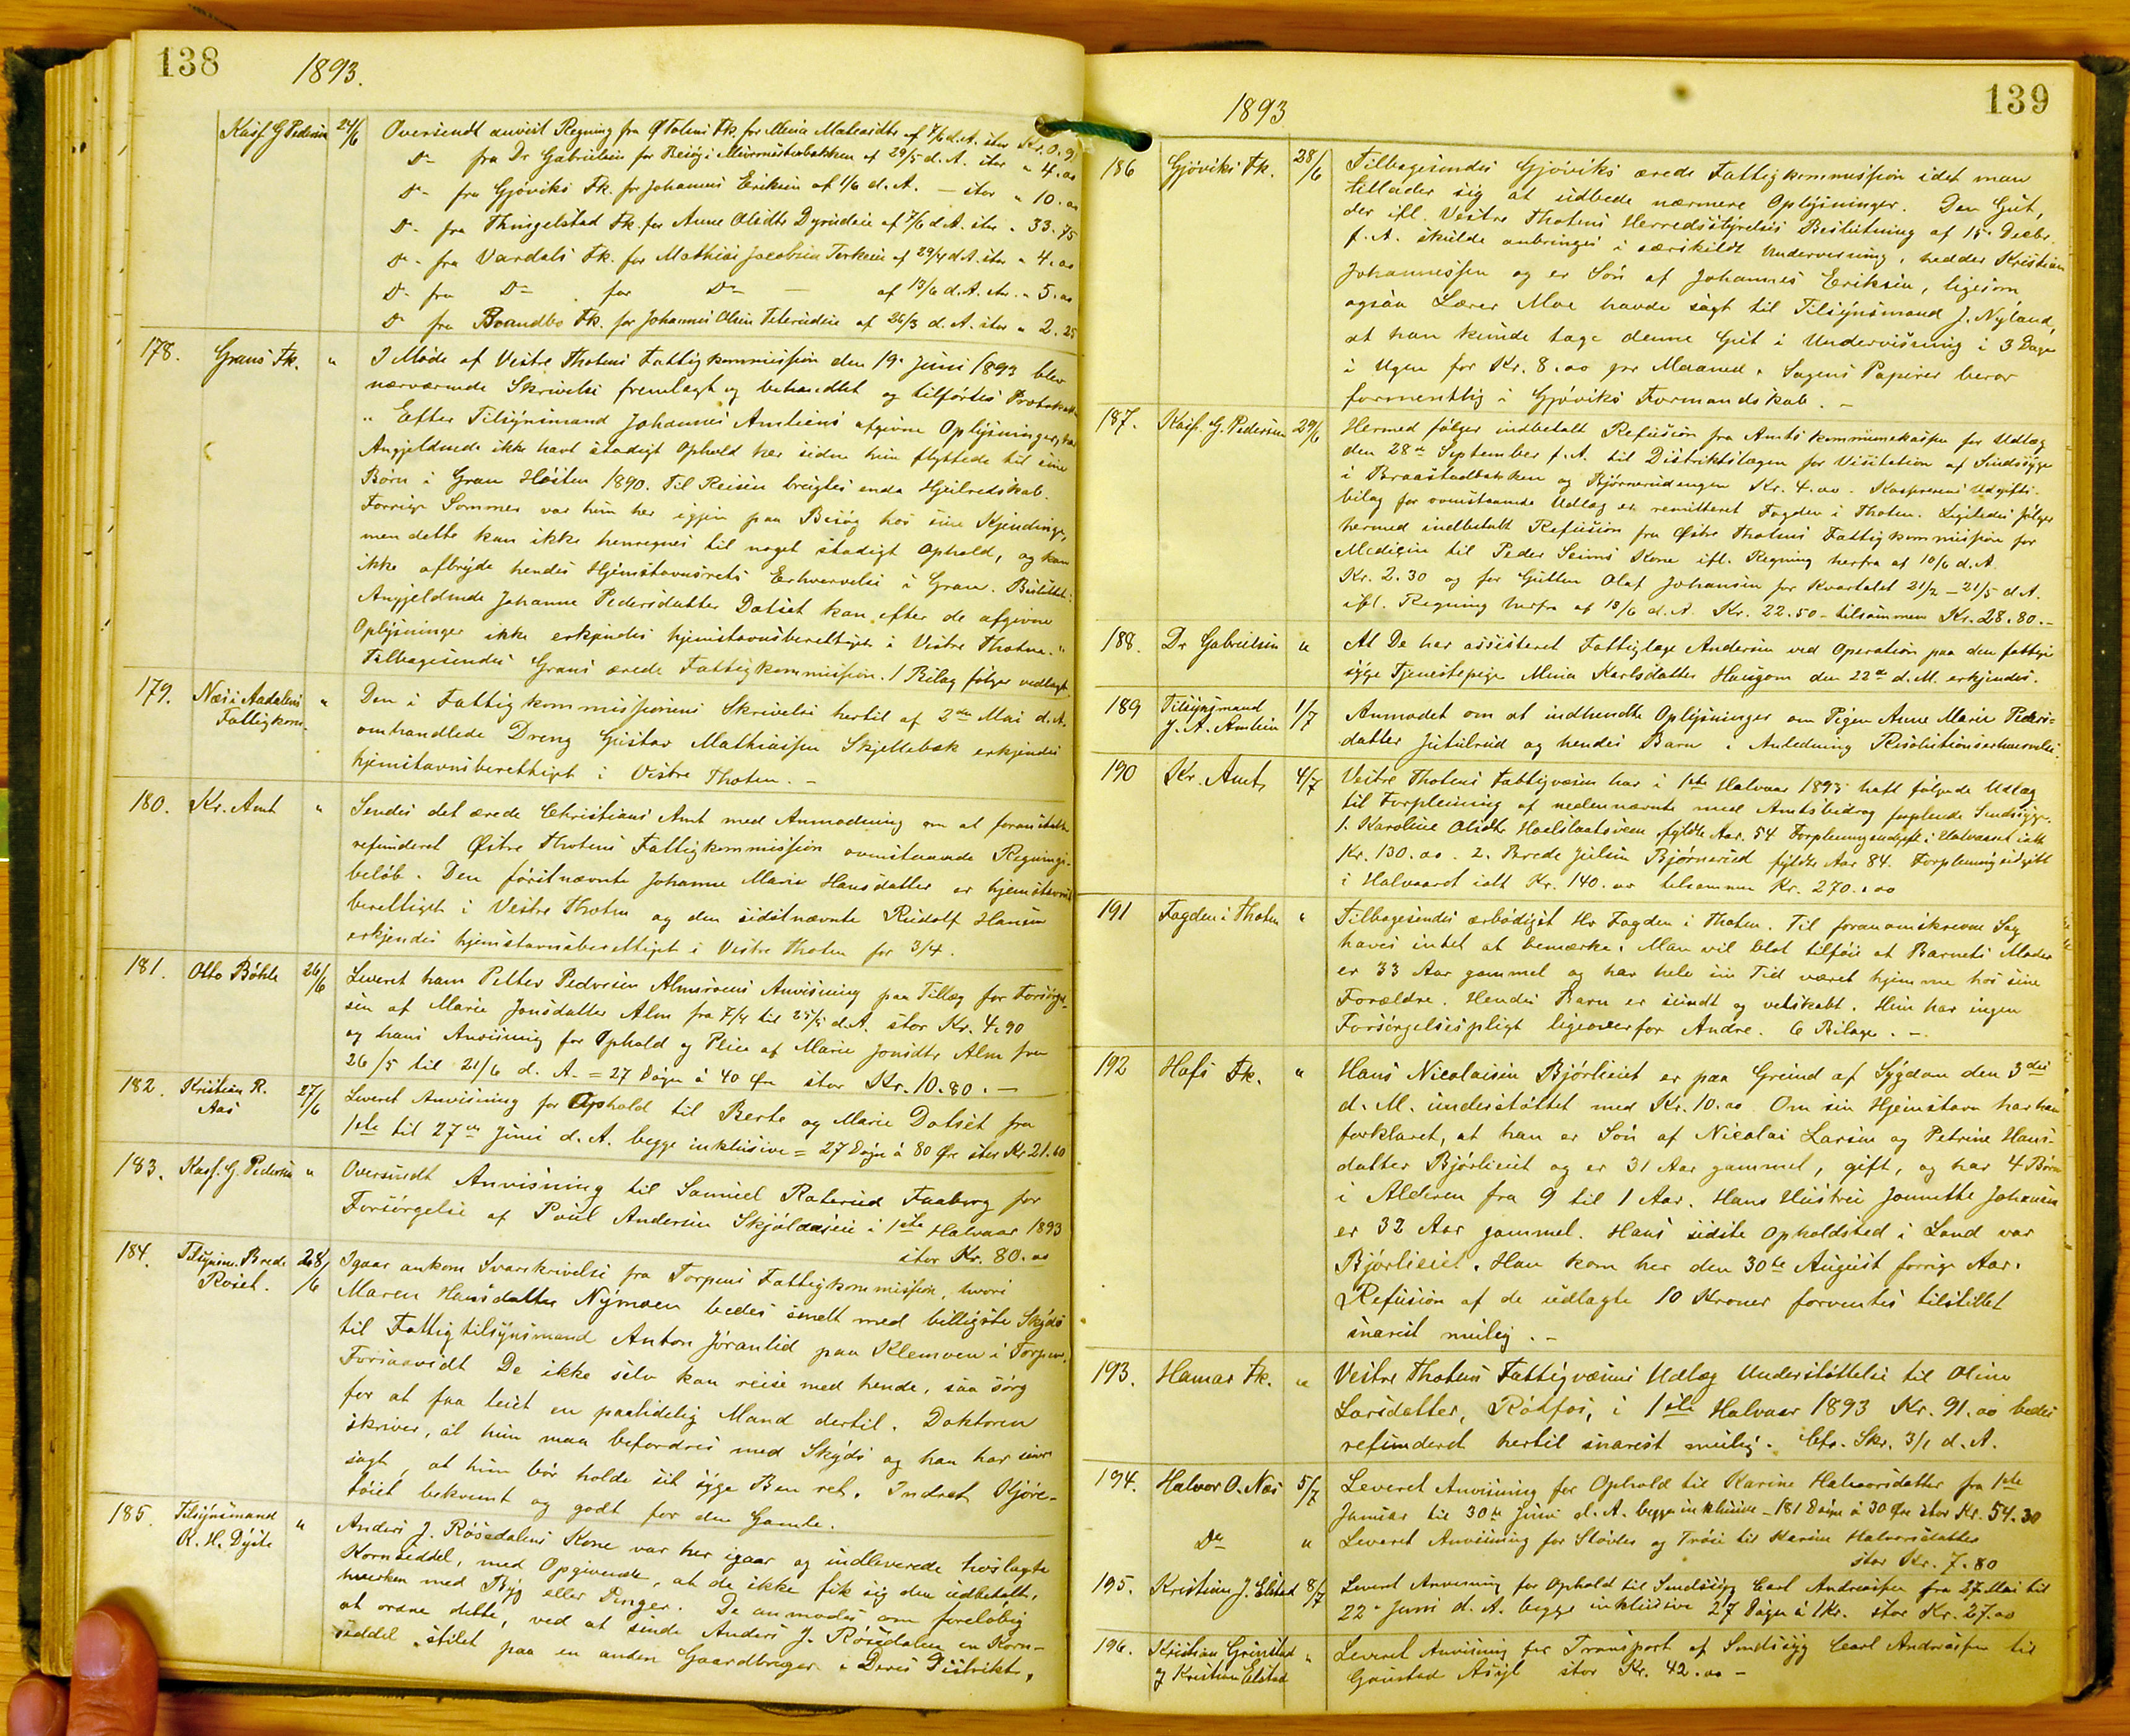 138
1893.
Kasf. G Pedersen 24/6 Oversendt anvist Regning fra Ø Totens Fk. for Maria d. A. stor Kr. 0.9
Do fra Dr Gabrielsen for Besøg i af 29/5 d. A. stor " 4.00
Do fra Gjøviks Fk. for Johannes Eriksen af 1/6 d. A. — stor " 10.00
Do fra Thingelstad Fk. for Anne Olsdtr Dyrudeie af 7/6 d. A. stor " 33.75
Do fra Vardals Fk. for Mathias Jacobsen af 29/4 d. A. stor " 4.00
Do fra Do for Do — af 13/6 d. A. str. " 5.00
Do fra Brandbo Fk. for Johannes Olsen af 26/3 d. A. stor " 2.25
178. Grans Fk. " I Møde af Vestre Thotens Fattigkommission den 19. Juni 1893 blev
nærværende Skrivelse fremlagt og behandlet og tilførtes Protokollen
" Efter Tilsynsmand Johannes Amliens afgivne Oplysninger, har
Angjeldende ikke havt stadigt Ophold her siden hun flyttede til sine
Børn i Gran Høsten 1890. Til Reisen brugtes enda Hjælpedskab.
Forrige Sommer var hun her igjen paa Besøg hos sine Kjendinge,
men dette kan ikke henregnes til noget stadigt Ophold, og kan
ikke afbryde hendes Hjemstavnsrets Erhvervelse i Gran. Besluttet:
Angjeldende Johanne Pedersdatter Dotset kan efter de afgivne
Oplysninger ikke erkjendes hjemstavnsberettiget i Vestre Thoten."
Tilbagesendes Grans ærede Fattigkommission. 1 Bilag følger vedlagt.
179. Næs i Aadalens Fattigkom. " Den i Fattigkommissionens Skrivelse hertil af 2den Mai d. A.
omhandlede Dreng Gustav Mathiassen Skjellebæk erkjendes
hjemstavnsberettiget i Vestre Thoten. —
180. Kr. Amt " Sendes det ærede Christians Amt med Anmodning om at foranstalte
refunderet Østre Thotens Fattigkommission ovenstaaende Regnings-
beløb. Den førstnævnte Johanne Marie Hansdatter er hjemstavns
berettiget i Vestre Thoten og den sidstnævnte Rudolf Hansen
erkjendes hjemstavnsberettiget i Vestre Thoten for 3/4.
181. Otto Bøhle 26/6 Leveret ham Petter Pedersen Almsroens Anvisning paa Tillæg for Forsørgel-
sen af Marie Jonsdatter Alm fra 7/4 til 25/5 d. A. stor Kr. 4.90
og hans Anvisning for Ophold og Pleie af Marie Jonsdtr Alm fra
26/5 til 21/6 d. A. = 27 Døgn á 40 Øre stor Kr. 10.80. —
182. Kristian R. Aas 27/6 Leveret Anvisning for Ophold til Berte og Marie Dotset fra
1ste til 27de Juni d. A. begge inklusive = 27 Døgn á 80 Øre stor Kr 21.60
183. Kasf. G. Pedersen " Oversendt Anvisning til Samuel Raterud Faaberg for
Forsørgelse af Poul Andersen Skjølaaseie i 1ste Halvaar 1893
stor Kr. 80.00
184. Tilsynsm. Brede Roset. 28/6 Igaar ankom Svarskrivelse fra Torpens Fattigkommission, hvori
Maren Hansdatter Nymoen bedes sendt med billigste Skyds
til Fattigtilsynsmand Anton Jøranlid paa Klemoen i Torpen.
Forsaavidt De ikke selv kan reise med hende, saa sørg
for at faa leiet en paalidelig Mand dertil. Doktoren
skriver, at hun maa befordres med Skyds og han har
sagt, at hun bør holde sit syge Ben ret. Indret Kjøre-
tøiet bekvemt og godt for den Gamle.
185. Tilsynsmand R. H. Dyste " Anders J. Røsedalens Kone var her igaar og indleverede hoslagte
Kornseddel, med Opgivende, at de ikke fik sig den udbetalt,
hverken med Byg eller Penger. De anmodes om foreløbig
at ordne dette, ved at sende Anders J. Røsedalen en Korn-
seddel stilet paa en anden Gaardbruger i Deres Distrikt,
139
1893
186 Gjøviks Fk. 28/6 Tilbagesendes Gjøviks ærede Fattigkommission idet man
tillader sig at udbede nærmere Oplysninger. Den Gut,
der ifl. Vestre Thotens Herredsstyrelses Beslutning af 15. Decbr.
f. A. skulde anbringes i særskildt Undervisning, hedder Kristian
Johannessen og er Søn af Johannes Eriksen, ligesom
ogsaa Lærer Moe havde sagt til Tilsynsmand J. Nyland,
at han kunde tage denne Gut i Undervisning i 3 Dage
i Ugen for Kr. 8.00 pr Maaned. Sagens Papirer beror
formentlig i Gjøviks Formandskab. —
187. Kasf. G. Pedersen 29/6 Hermed følger indbetalt Refusion fra Amtskommunekassen for Udlæg
den 28de September f. A. til Distriktslægen for Visitation af Sindssyge
i Braastadbakken og Bjørnerudengen Kr. 4.00. Kassererens Udgifts-
bilag for ovenstaaende Udlæg er remitteret Fogden i Thoten. Ligeledes følger
hermed indbetalt Refusion fra Østre Thotens Fattigkommission for
Medicin til Peder Seims Kone ifl. Regning herfra af 10/6 d. A.
Kr. 2.30 og for Gutten Olaf Johansen for Kvartalet 21/2 – 21/5 d. A.
ifl. Regning herfra af 13/6 d. A. Kr. 22.50 – tilsammen Kr. 28.80. –
188. Dr Gabrielsen " At De har assisteret Fattiglæge Andersen ved Operation paa den fattige
syge Tjenestepige Mina Karlsdatter Haugom den 22de d. M. erkjendes.
189 Tilsynsmand J. A. Amlien 1/7 Anmodet om at indhendte Oplysninger om Pigen Anne Marie Peders-
datter Jutulrud og hendes Barn i Anledning Resolutionserhvervelse.
190 Kr. Amt 4/7 Vestre Thotens Fattigvæsen har i 1ste Halvaar 1893 haft følgende Udlæg
til Forpleining af nedennævnte med Amtsbidrag forpleiede Sindssyge.
1. Karoline Olsdtr fyldte Aar. 54 Forpleiningsudgift i Halvaaret ialt
Kr. 130.00. 2. Brede Julsen Bjørnerud fyldte Aar 84. Forpleiningsudgift
i Halvaaret ialt Kr. 140.00 tilsammen Kr. 270.00
191 Fogden i Thoten " Tilbagesendes ærbødigst Hr Fogden i Thoten. Til foranomskrevne Sag
haves intet at bemærke. Man vil blot tilføie at Barnets Moder
er 33 Aar gammel og har hele sin Tid været hjemme hos sine
Forældre. Hendes Barn er sundt og velskabt. Hun har ingen
Forsørgelsespligt ligeoverfor Andre. 6 Bilage. —
192 Hofs Fk. " Hans Nicolaisen Bjørlieiet er paa Grund af Sygdom den 3die
d. M. understøttet med Kr. 10.00 Om sin Hjemstavn har han
forklaret, at han er Søn af Nicolai Larsen og Petrine Hans-
datter Bjørlieiet og er 31 Aar gammel, gift, og har 4 Børn
i Alderen fra 9 til 1 Aar. Hans Hustru Jonnette Johansen
er 32 Aar gammel. Hans sidste Opholdsted i Land var
Bjørlieiet. Han kom her den 30te August forrige Aar.
Refusion af de udlagte 10 Kroner forventes tilstillet
snarest mulig. —
193. Hamar Fk. " Vestre Thotens Fattigvæsens Udlæg Understøttelse til Oline
Larsdatter, Røtfos, i 1ste Halvaar 1893 Kr. 91.00 bedes
refunderet hertil snarest mulig. Cfr. Skr. 3/1 d. A.
194. Halvor O. Næs 5/7 Leveret Anvisning for Ophold til Karine Halvorsdatter fra 1ste
Januar til 30te Juni d. A. begge inklusive – 181 Døgn á 30 Øre stor Kr. 54.30
Do " Leveret Anvisning for Støvler og Trøie til Karine Halvorsdatter
stor Kr. 7.80
195. Kristian J. Elstad 8/7 Leveret Anvisning for Ophold til Sindssyg Carl Andreassen fra 27 Mai til
22. Juni d. A. begge inklusive 27 Døgn á 1 Kr. stor Kr. 27.00
196. Kristian Grinstad & Kristian Elstad " Leveret Anvisning for Transport af Sindssyg Carl Andreassen til
Gaustad Asyl stor Kr. 42.00 –